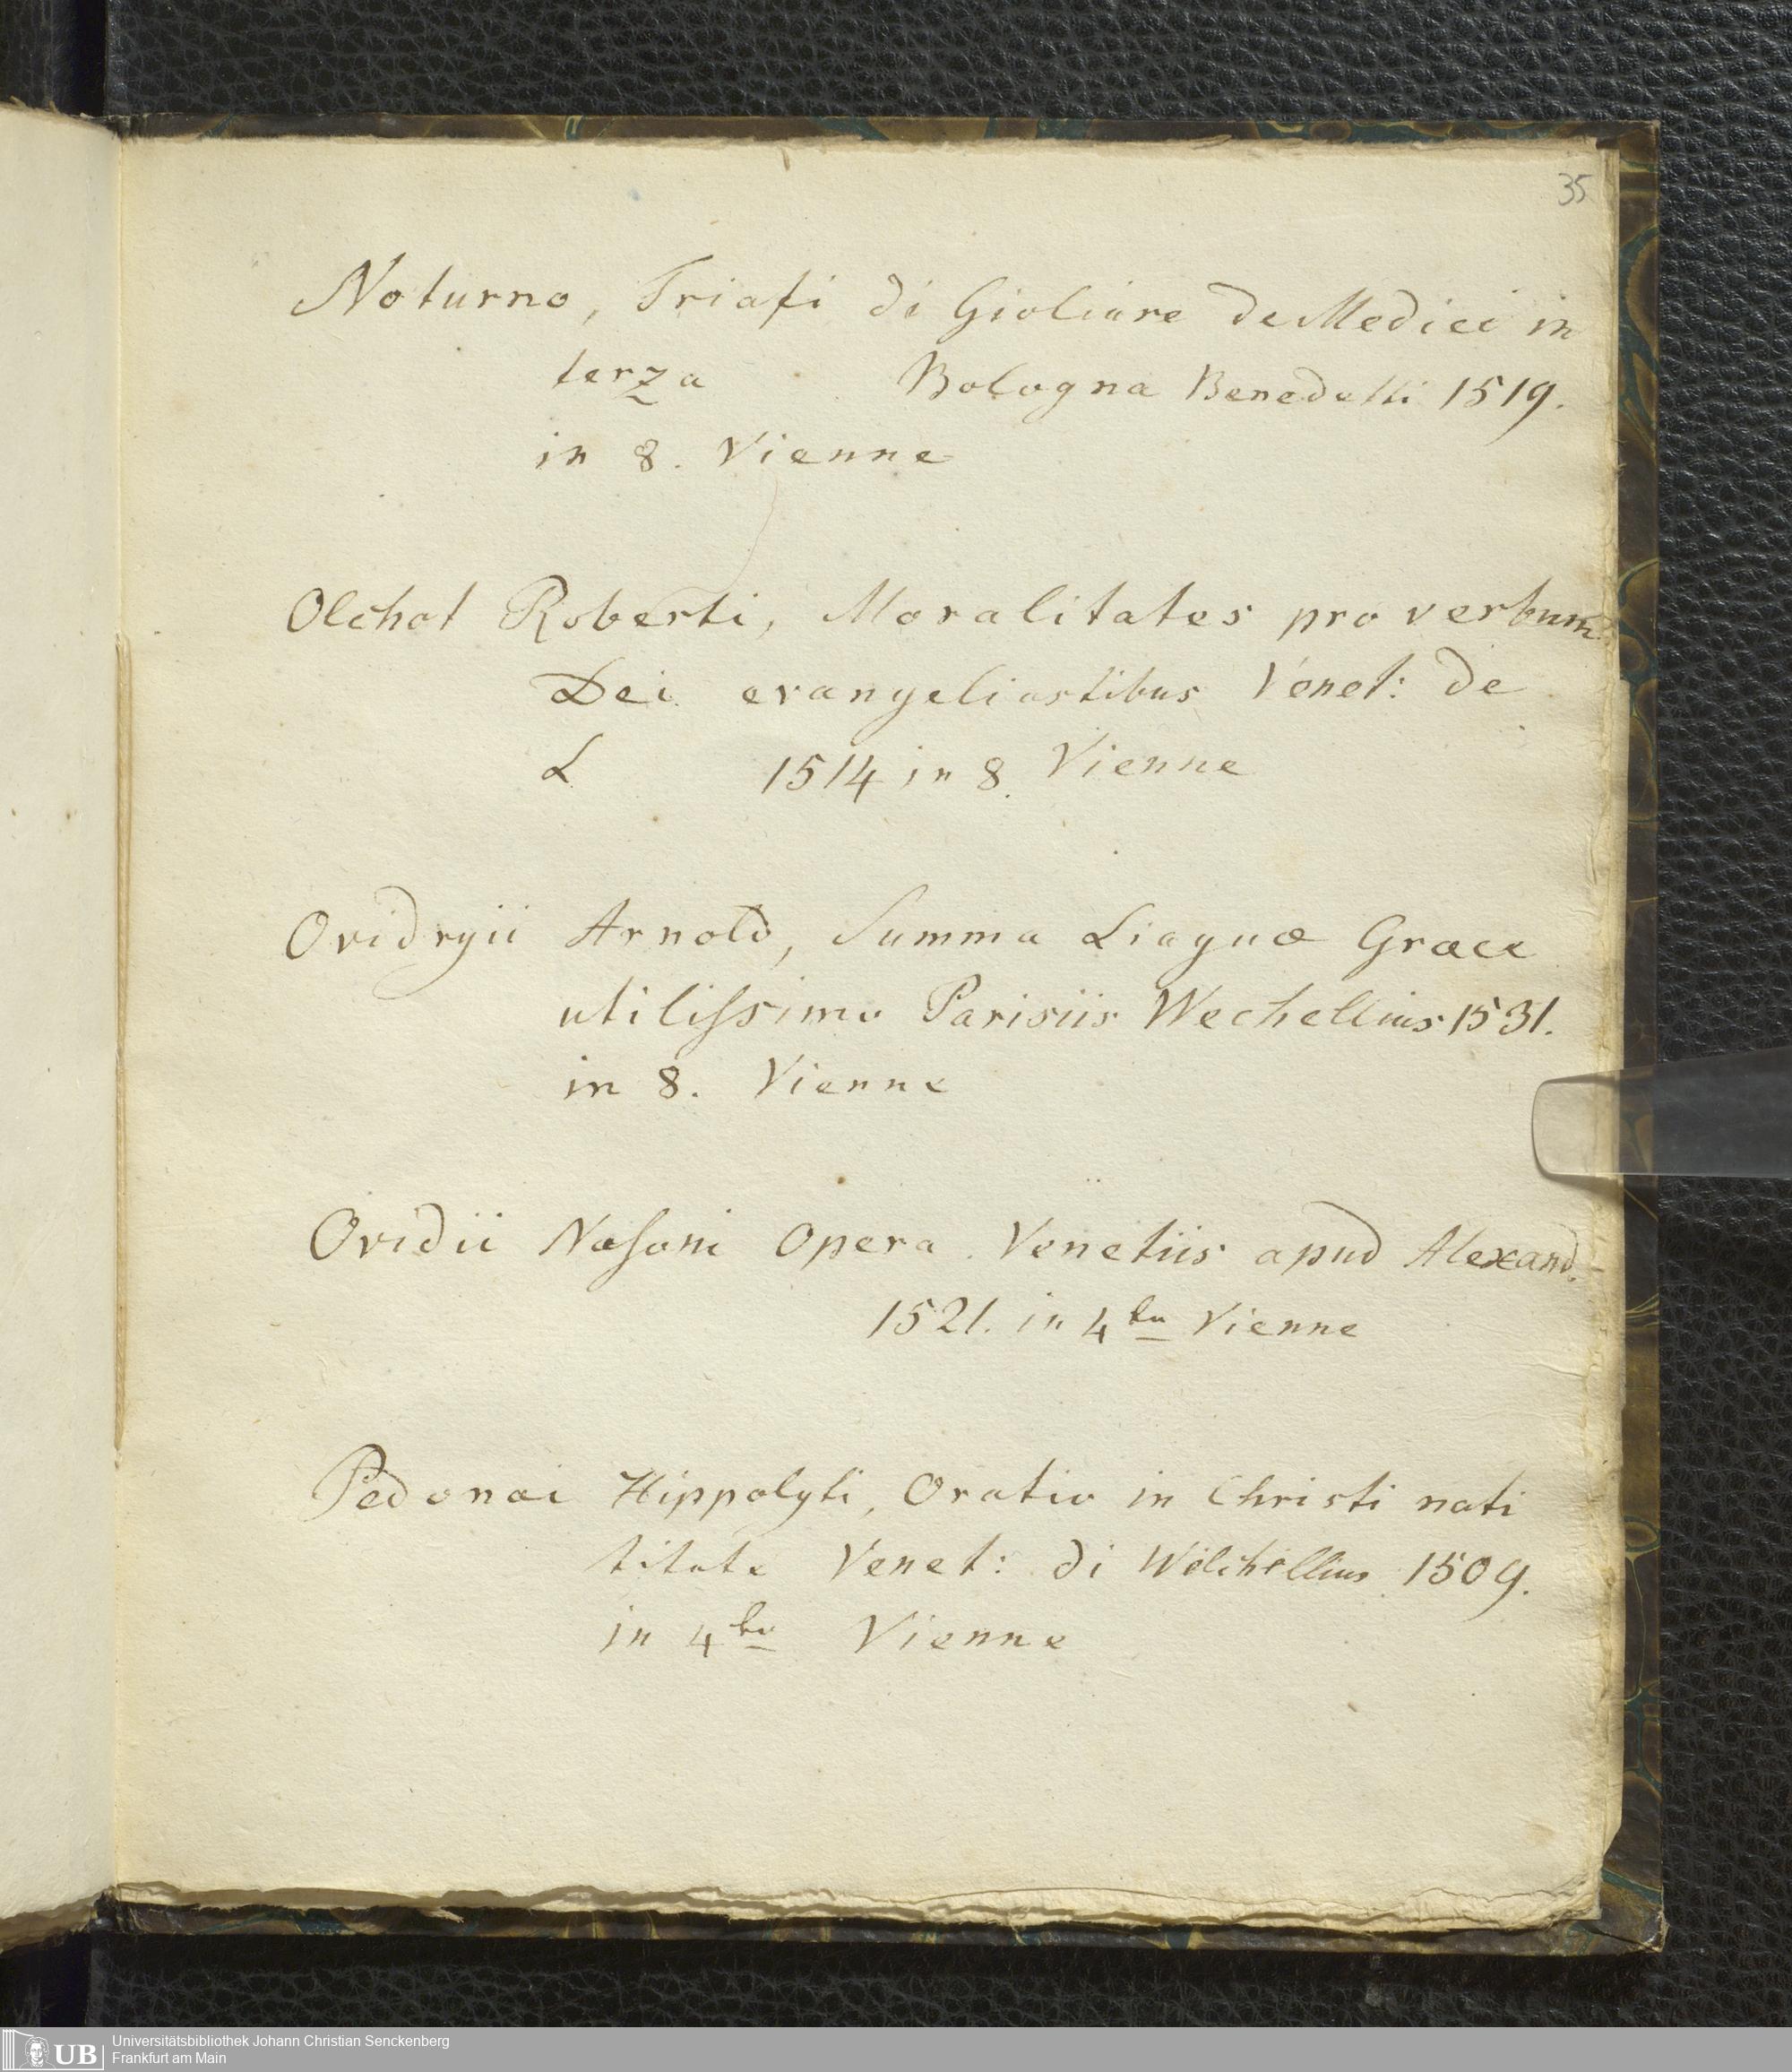 35
Noturno, Triafi di Gioliare de Medici in
terza Bologna Benedetti 1519.
in 8. Vienne
Olchot Roberti, Moralitates pro verbum
Dei evangeliastibus Venet: de
L 1514 in 8. Vienne
Ovidryii Arnold, Summa Liaguæ Græcæ
utilissimo Parisiis Wechellius 1531.
in 8. Vienne
Ovidii Nasoni Opera Venetiis apud Alexand.
1521. in 4to Vienne
Pedonai Hippolyti, Oratio in Christi nati
titate Venet: di Wilchellius 1509.
in 4to Vienne
UB Universitätsbibliothek Johann Christian Senckenberg
Frankfurt am Main